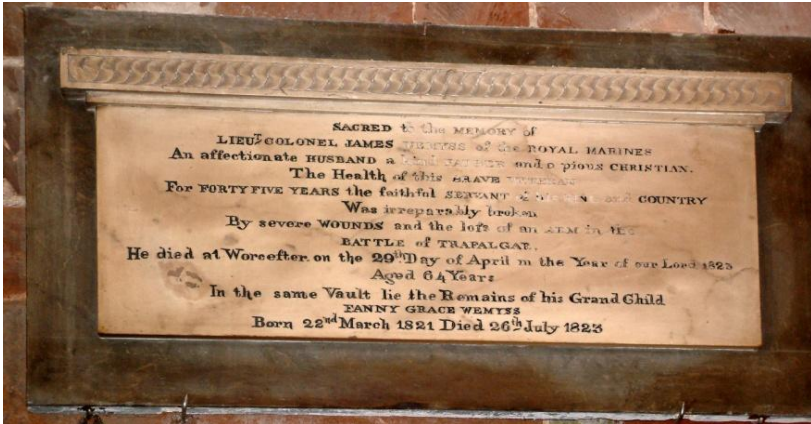 SACRED to the MEMORY of
LIEUT COLONEL JAMES WEMYSS of the ROYAL MARINES
An affectionate HUSBAND a kind FATHER and a pious CHRISTIAN.
The Health of this BRAVE VETERAN
For FORTY FIVE YEARS the faithful SERVANT of his KING and COUNTRY
Was irreparably broken
By severe WOUNDS and the loſs of an ARM in the
BATTLE of TRAFALGAR.
He died at Worceſter on the 29th Day of April in the Year of our Lord 1823
Aged 64 Years
In the same Vault lie the Remains of his Grand Child
FANNY GRACE WEMYSS
Born 22nd March 1821 Died 26th July 1823